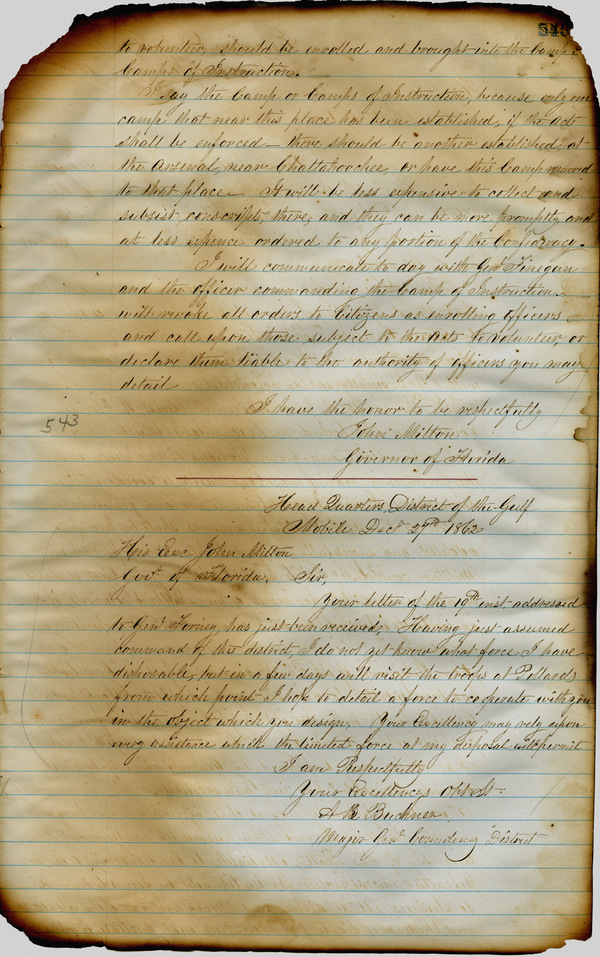 543
to volunteer, should be enrolled and brought into the Camp or
Camps of Instruction.
I say the Camp or Camps of Instruction, because only one
camp that near this place has been established, if the Acts
shall be enforced – there should be another established at
the Arsenal, near Chattahoochee, or have this Camp removed
to that place – It will be less expensive to collect and
subsist conscripts, there, and they can be more promptly and
at less expence ordered to any portion of the Confederacy.
I will communicate to day with Genl Finegan
and the officer commanding the Camp of Instruction –
will revoke all orders to Citizens as enrolling officers –
and call upon those subject to the Acts to volunteer or
declare them liable to the authority of officers you may
detail
I have the honor to be respectfully
John Milton
Governor of Florida
543
Head Quarters, District of the Gulf
Mobile Decr 27th 1862
His Exc. John Milton
Govr of Florida, Sir,
Your letter of the 19th inst addressed
to Genl Forney has just been received, Having just assumed
command of the district, I do not yet know what force I have
disposable, but in a few days will visit the troops at Pollards
from which point I hope to detail a force to cooperate with you
in the object which you design, Your Excellency may rely upon
every assistance which the limited force at my disposal will permit
I am Respectfully
Your Excellencys Obt St.
Buckner
Major Genl Comding District